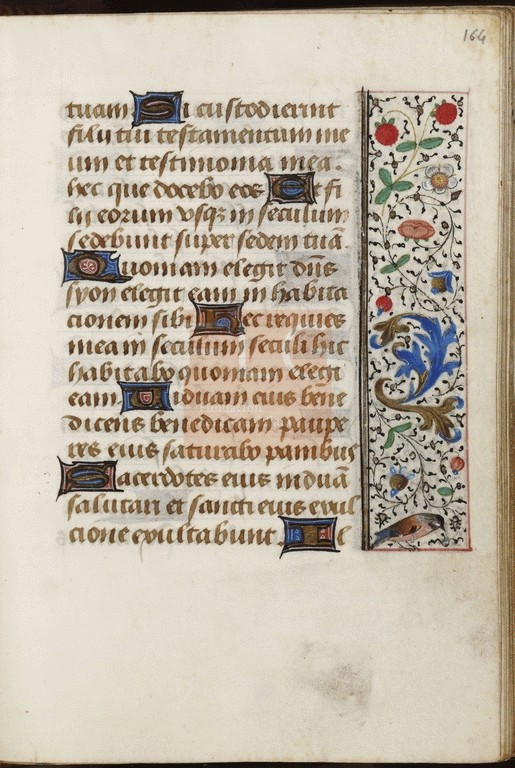 164
tuam Si custodierint
filij tui testamentum me
um et testimonia mea.
hec que docebo eos Et fi
lij eorum vsqz in seculum
sedebunt super sedem tuā.
Quoniam elegit dn̄s
syon elegit eam in habita
cionem sibi Hec requies
mea in seculum seculi hic
habitabo quoniam elegi
eam Uiduam eius bene
dicens benedicam paupe
res eius saturabo panibus
Sacerdotes eius induā
salutari et sancti eius exul
tione exultabunt. Il